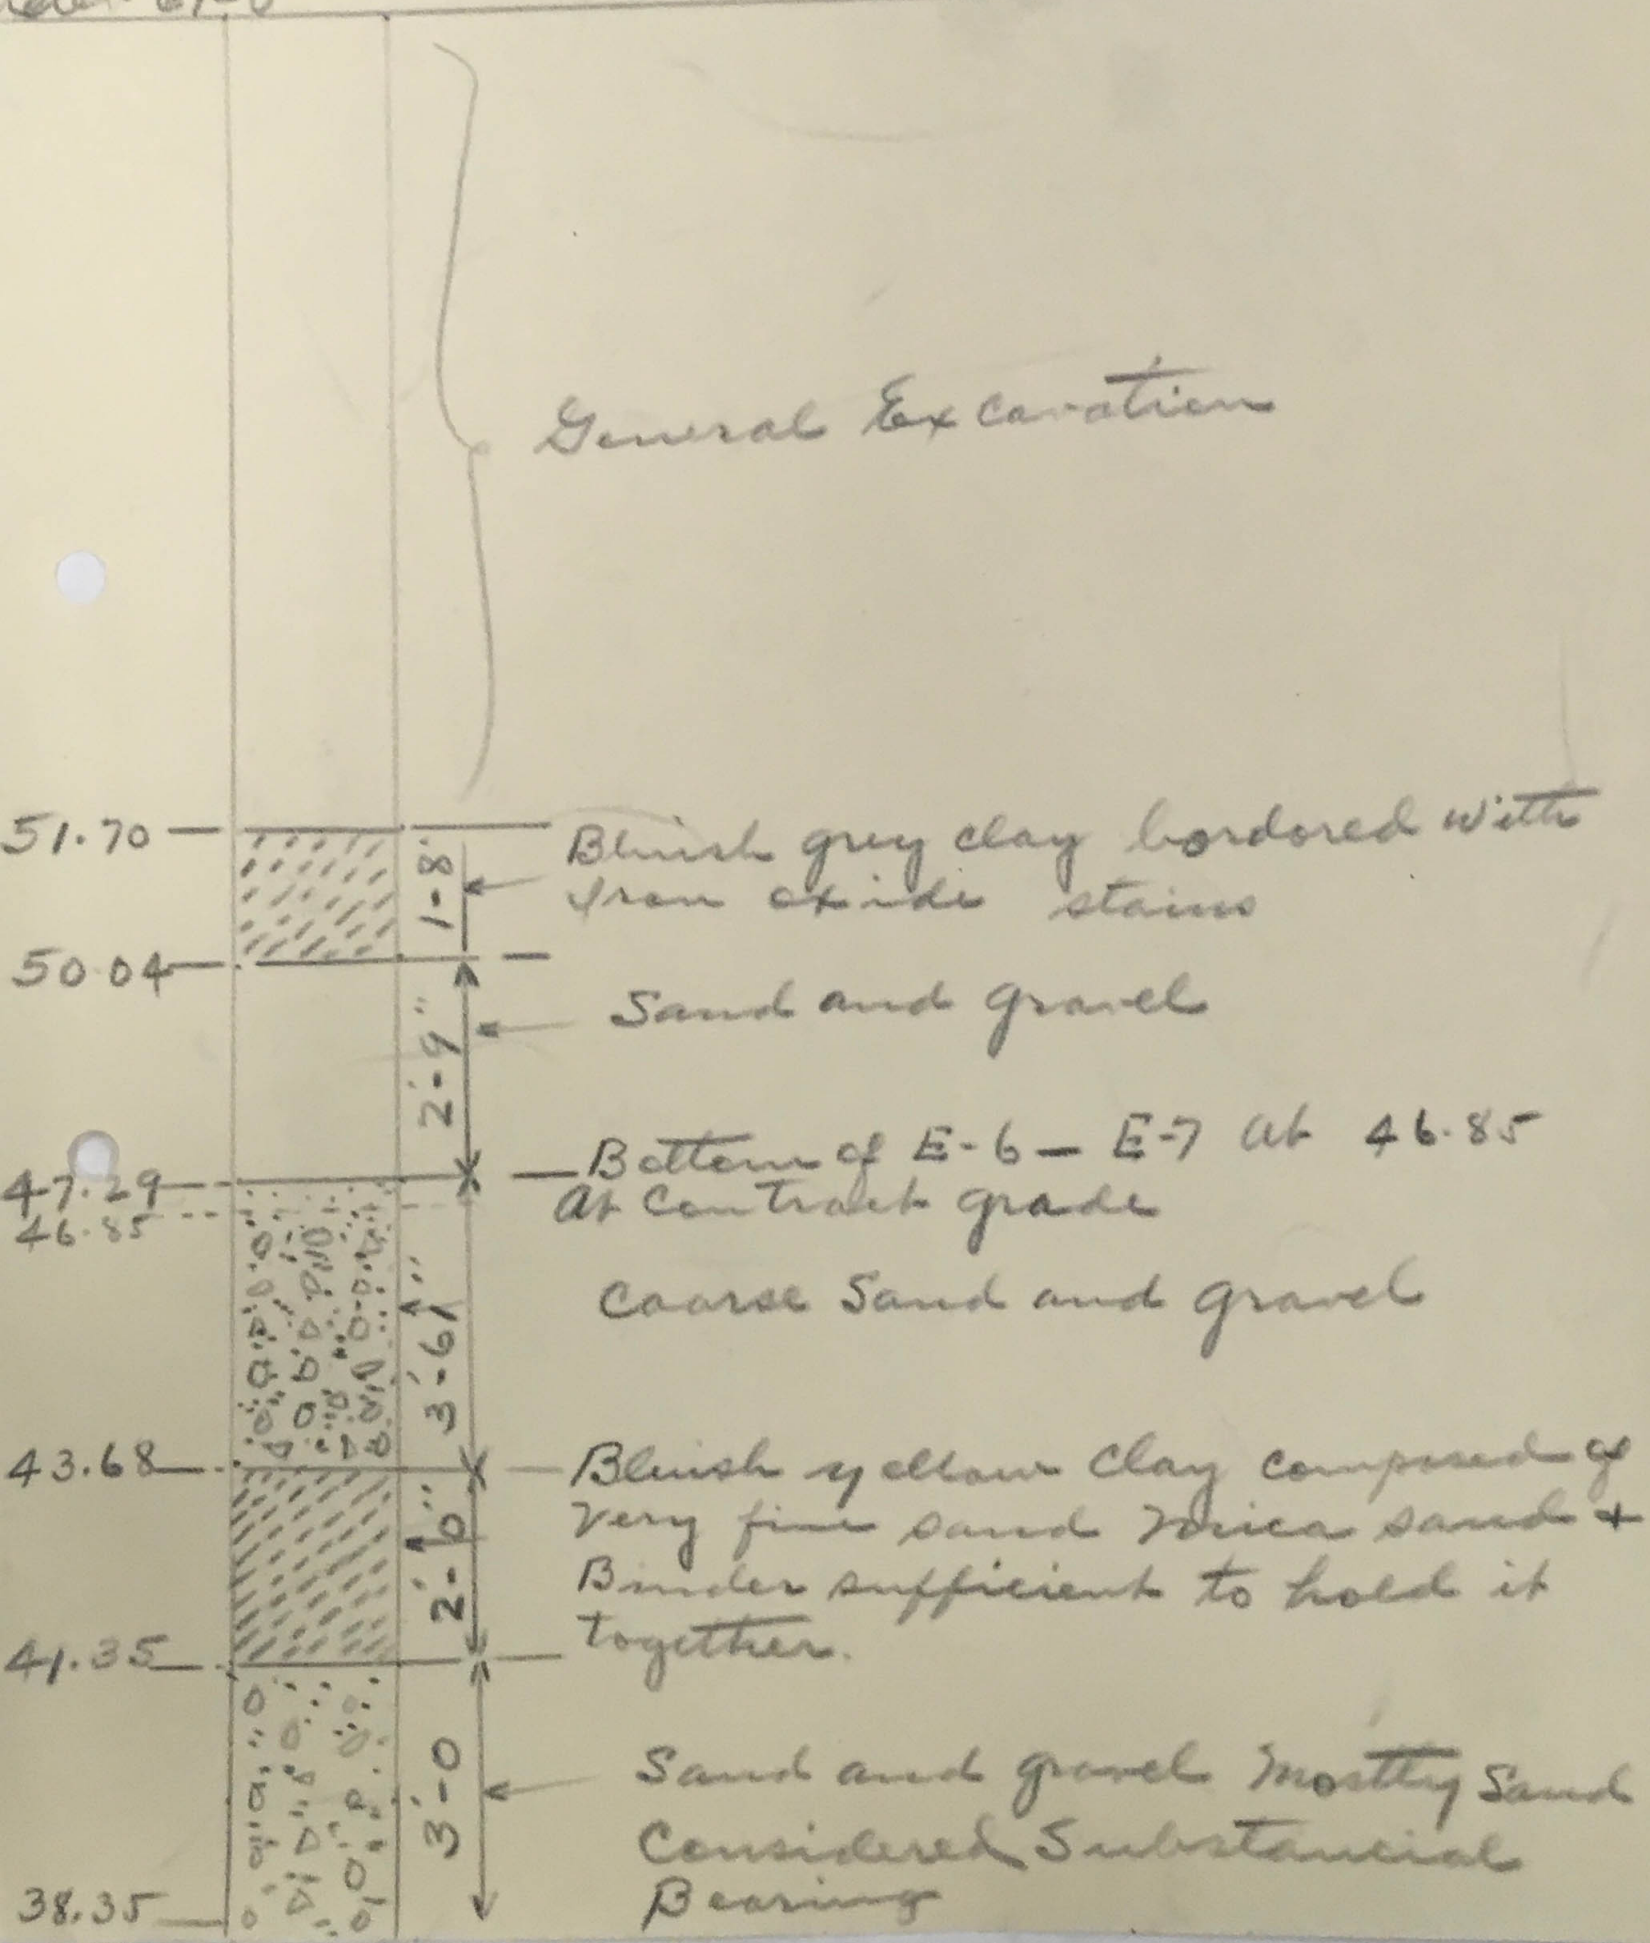 General Excavation
51.70
1-8"
Bluish grey clay bordored with
Iron oxide stains
50.04
2'-9"
Sand and gravel
Bottom of E-6 - E-7 at 46.85
47.29
At Contract grade
46.85
3'-6"
Coarse Sand and gravel
43.68
2'-0"
Bluish yellow Clay composed of
Very fine sand Mica sand +
Binder sufficient to hold it
together.
41.35
3'-0
Sand and gravel Mostly Sand
Considered Substancial
Bearing
38.35